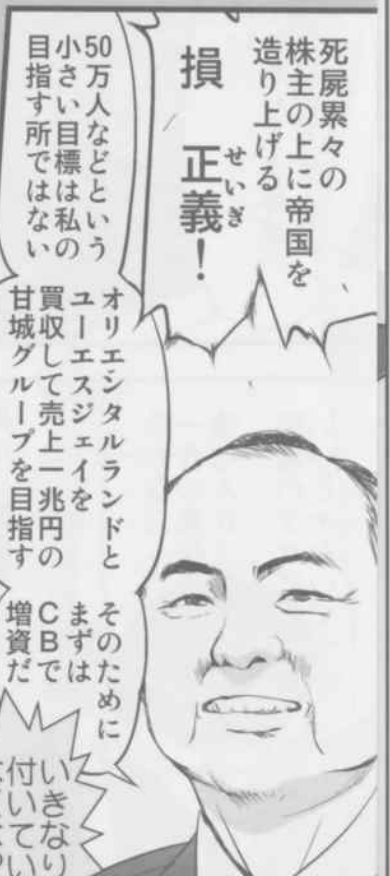 死屍累々の
株主の上に帝国を
造り上げる
損　正義！
せいぎ
50万人などという
小さい目標は私の
目指す所ではない
オリエンタルランドと
ユーエスジェイを
買収して売上一兆円の
甘城グループを目指す
そのために
まずは
CBで
増資だ
いきなり